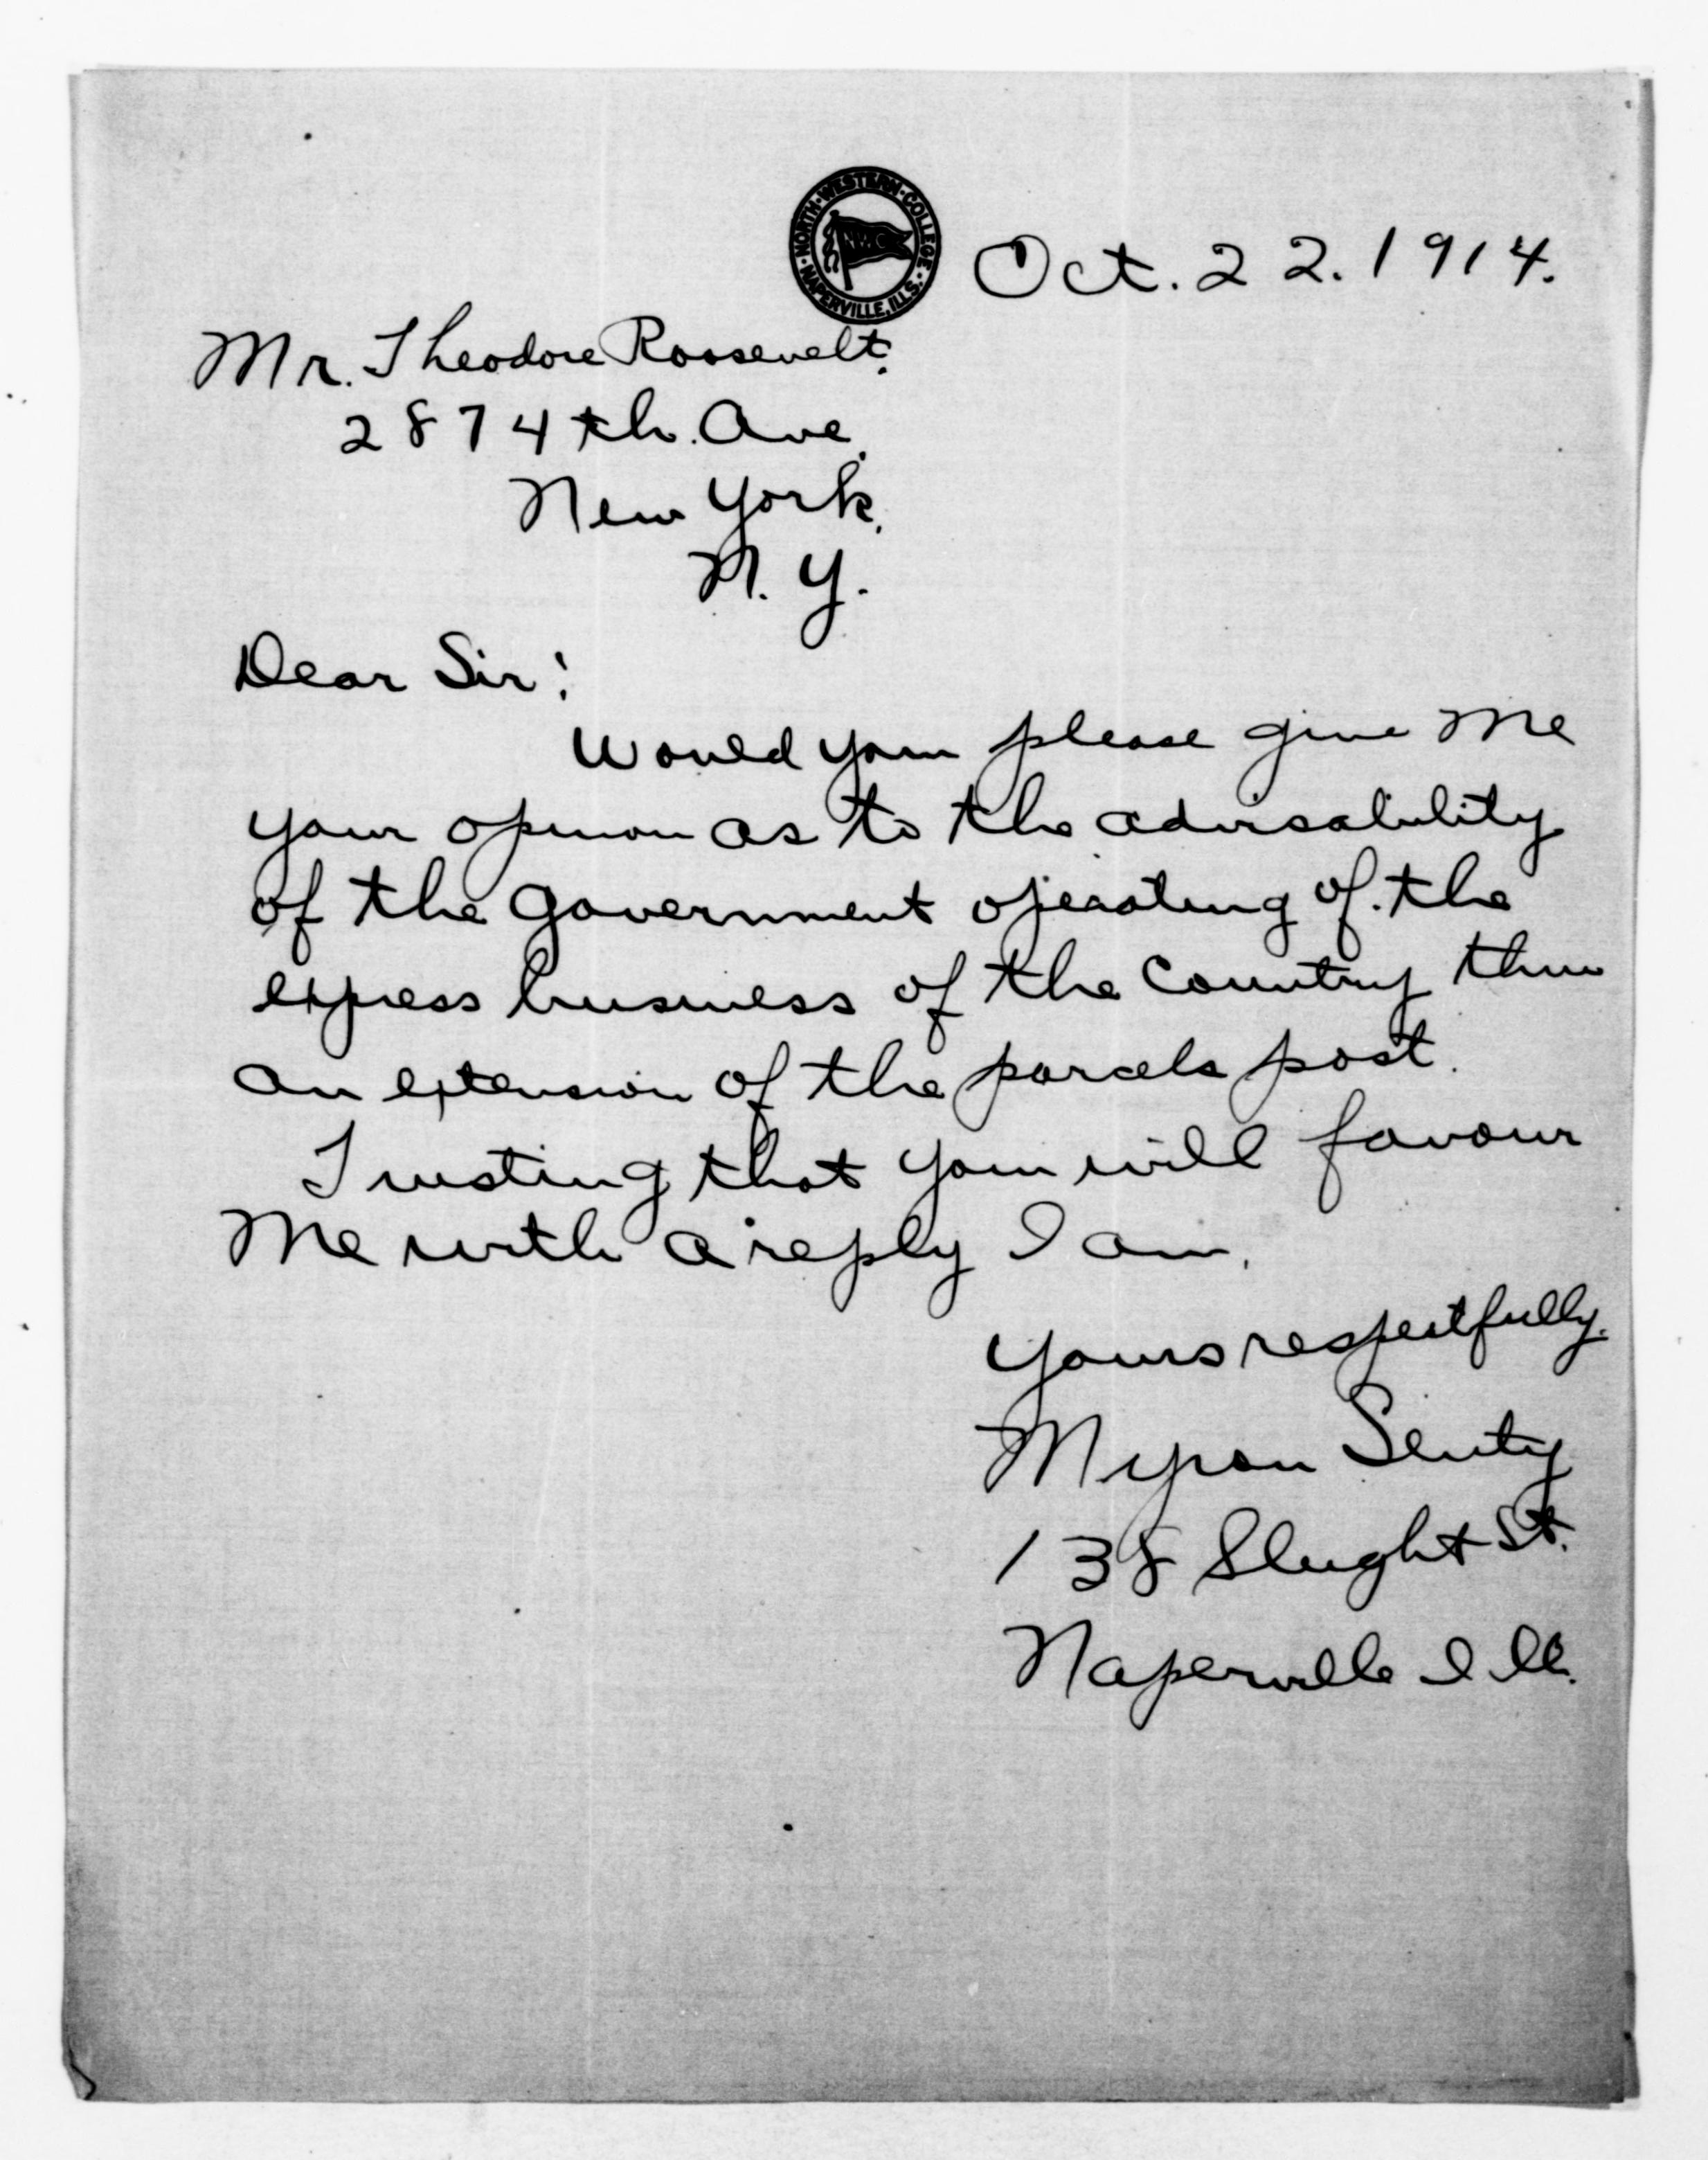 NORTH-WESTERN-COLLEGE. NAPERVILLE, ILLS.
NWC
Oct. 22. 1914.
Mr. Theodore Roosevelt.
287 4th. Ave.
New York,
N. Y.
Dear Sir:
Would you please give me
your opinion as to the advisability
of the government operating of the
express business of the country thru
an extension of the parcels post.
Trusting that you will favour
me with a reply I am,
Yours respectfully.
Myron Senty
138 Slught St.
Naperville Ill.